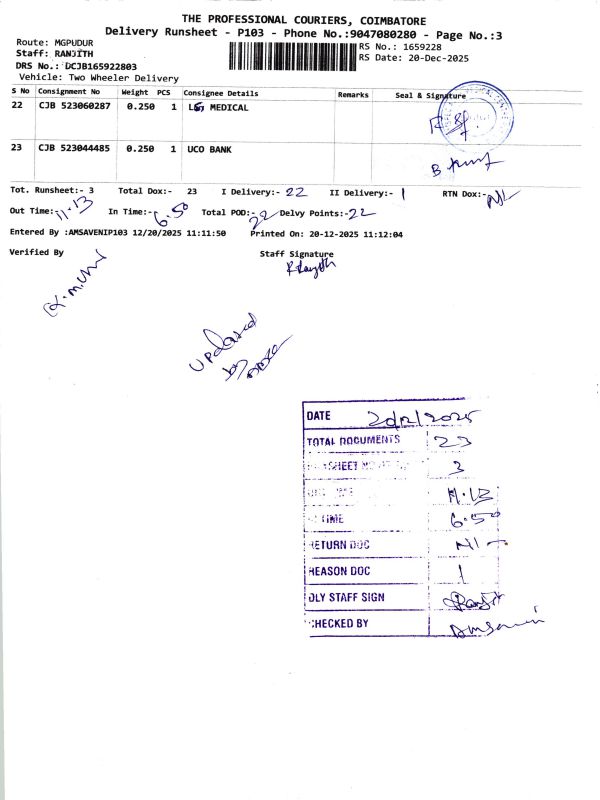 THE PROFESSIONAL COURIERS, COIMBATORE
Delivery Runsheet - P103 - Phone No.:9047080280 - Page No.:3
Route: MGPUDUR
RS No.: 1659228
Staff: RANJITH
RS Date: 20-Dec-2025
DRS No.: DCJB165922803
Vehicle: Two Wheeler Delivery
S No Consignment No Weight PCS Consignee Details Remarks Seal & Signature
22 CJB 523060287 0.250 1 MEDICAL
23 CJB 523044485 0.250 1 UCO BANK
Tot. Runsheet:- 3 Total Dox:- 23 I Delivery:- 22 II Delivery:- 1 RTN Dox:- NIL
Out Time:- 11.13 In Time:- 6.50 Total POD:- 22 Delvy Points:- 22
Entered By :AMSAVENIP103 12/20/2025 11:11:50 Printed On: 20-12-2025 11:12:04
Verified By Staff Signature
Updated
by
DATE 20/12/2025
TOTAL DOCUMENTS 23
SHEET 3
11.13
TIME 6.50
RETURN DOC NIL
REASON DOC 1
DLY STAFF SIGN
CHECKED BY